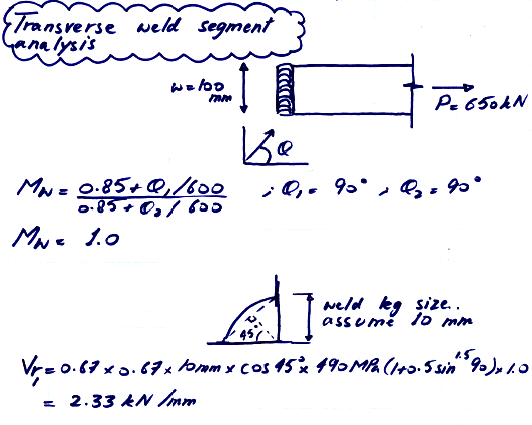 Transverse weld segment
analysis
w = 100
mm
P = 650 kN
θ
Mw = 0.85 + θ1/600
0.85 + θ2/600
; θ1 = 90° , θ2 = 90°
Mw = 1.0
weld leg size..
assume 10 mm
45°
Vr1 = 0.67 × 0.67 × 10mm × cos 45° × 490 MPa (1+0.5 sin^1.5 90) × 1.0
= 2.33 kN/mm